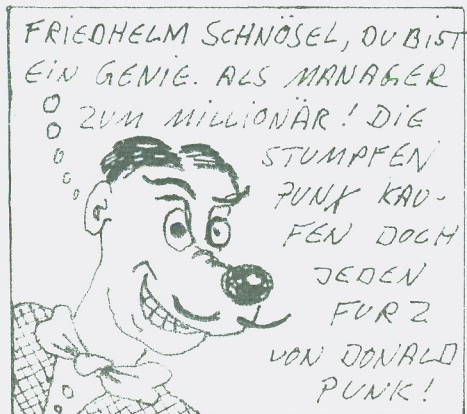 FRIEDHELM SCHNÖSEL, DU BIST
EIN GENIE. ALS MANAGER
ZUM MILLIONÄR! DIE
STUMPFEN
PUNX KAU-
FEN DOCH
JEDEN
FURZ
VON DONALD
PUNK!